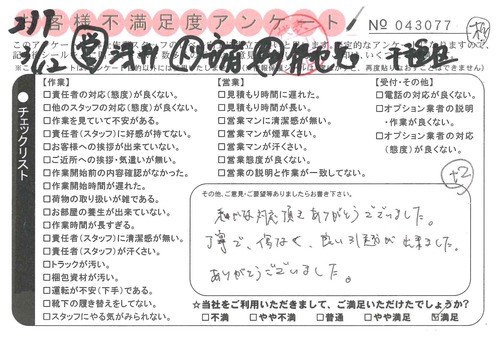 お客様不満足度アンケート
No 043077
チェックリスト
【作業】
□責任者の対応(態度)が良くない。
□他のスタッフの対応(態度)が良くない。
□作業を見ていて不安がある。
□責任者(スタッフ)に好感が持てない。
□お客様への挨拶が出来ていない。
□ご近所への挨拶・気遣いが無い。
□作業開始前の内容確認がなかった。
□作業開始時間が遅れた。
□荷物の取り扱いが雑である。
□お部屋の養生が出来ていない。
□作業時間が長すぎる。
□責任者(スタッフ)に清潔感が無い。
□責任者(スタッフ)が汗くさい。
□トラックが汚い。
□梱包資材が汚い。
□運転が不安(下手)である。
□靴下の履き替えをしてない。
□スタッフにやる気がみられない。
【営業】
□見積もり時間に遅れた。
□見積もり時間が長い。
□営業マンに清潔感が無い。
□営業マンが煙草くさい。
□営業マンが汗くさい。
□営業態度が良くない。
□営業の説明と作業が一致してない。
【受付・その他】
□電話の対応が良くない。
□オプション業者の説明
・作業が良くない。
□オプション業者の対応
(態度)が良くない。
その他、ご意見・ご要望等ありましたらお書き下さい。
対応頂きありがとうございました。
丁寧で、傷もなく、良い引越が出来ました。
ありがとうございました。
☆当社をご利用いただきまして、ご満足いただけたでしょうか?
□不満 □やや不満 □普通 □やや満足 ☑満足